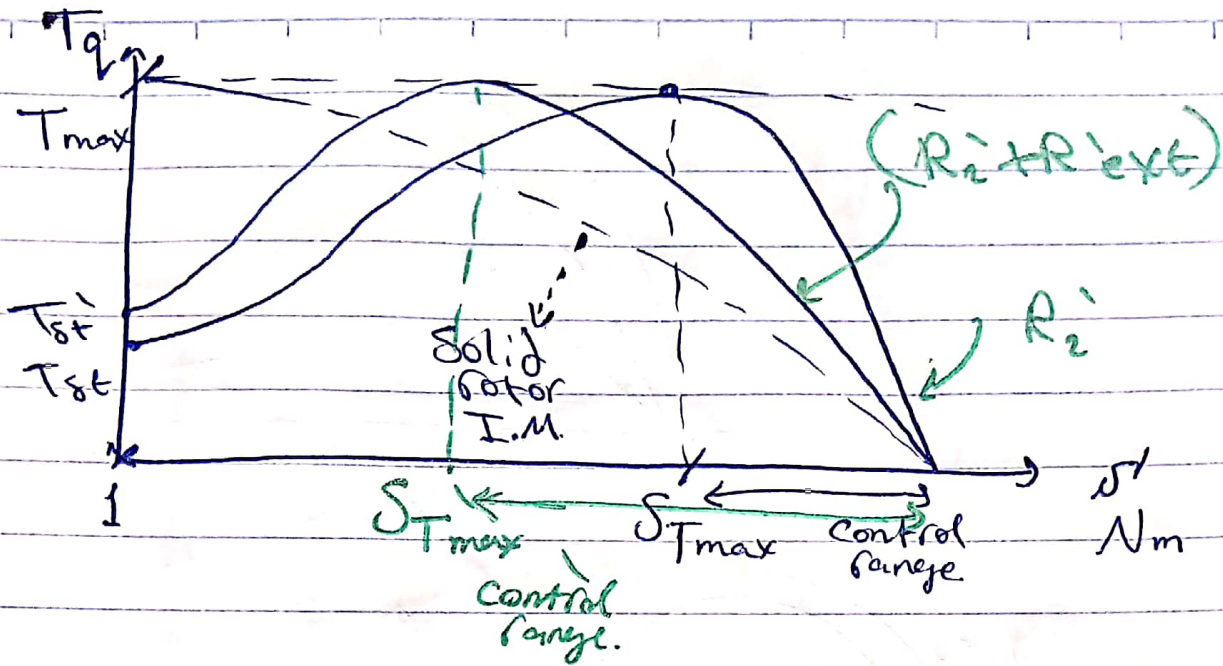 Tq
Tmax
(R₂' + R'ext)
Tst'
R₂'
Tst
Solid
rotor
I.M.
1
S
STmax
STmax
control
range
Nm
control
range.